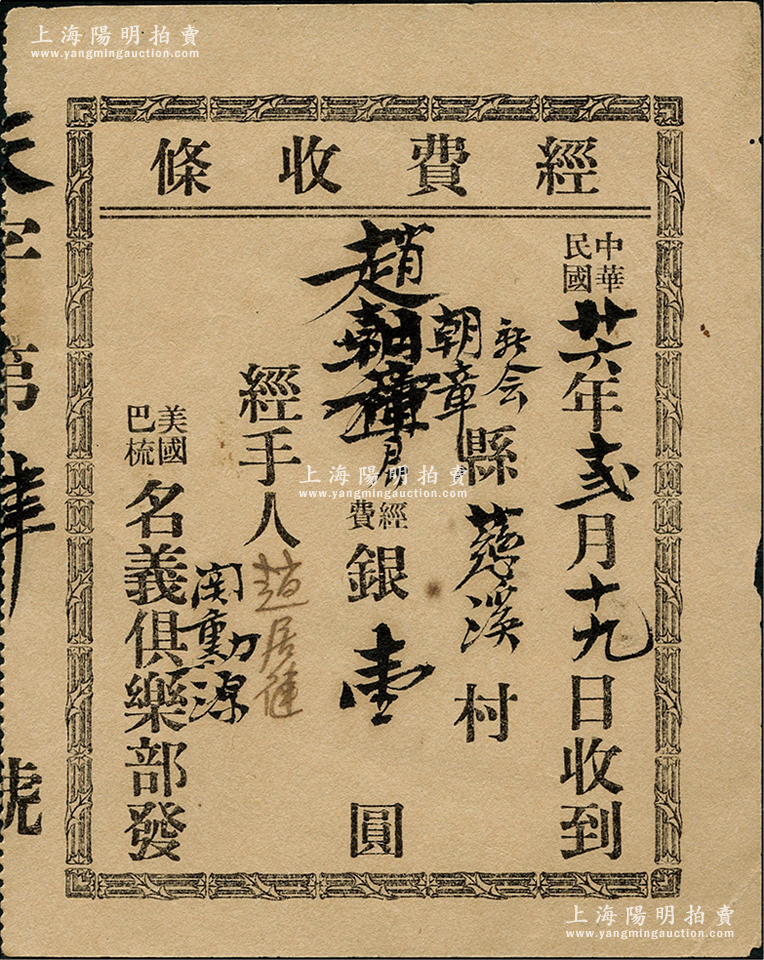 上海陽明拍賣
www.yangmingauction.com
經費收條
中華民國廿六年弍月十九日收到
新会縣慈溪村
朝章
趙
經費銀壹圓
經手人趙居健
関勳源
美國巴梳名義俱樂部發
天字第肆號
上海陽明拍賣
www.yangmingauction.com
上海陽明拍賣
www.yangmingauction.com